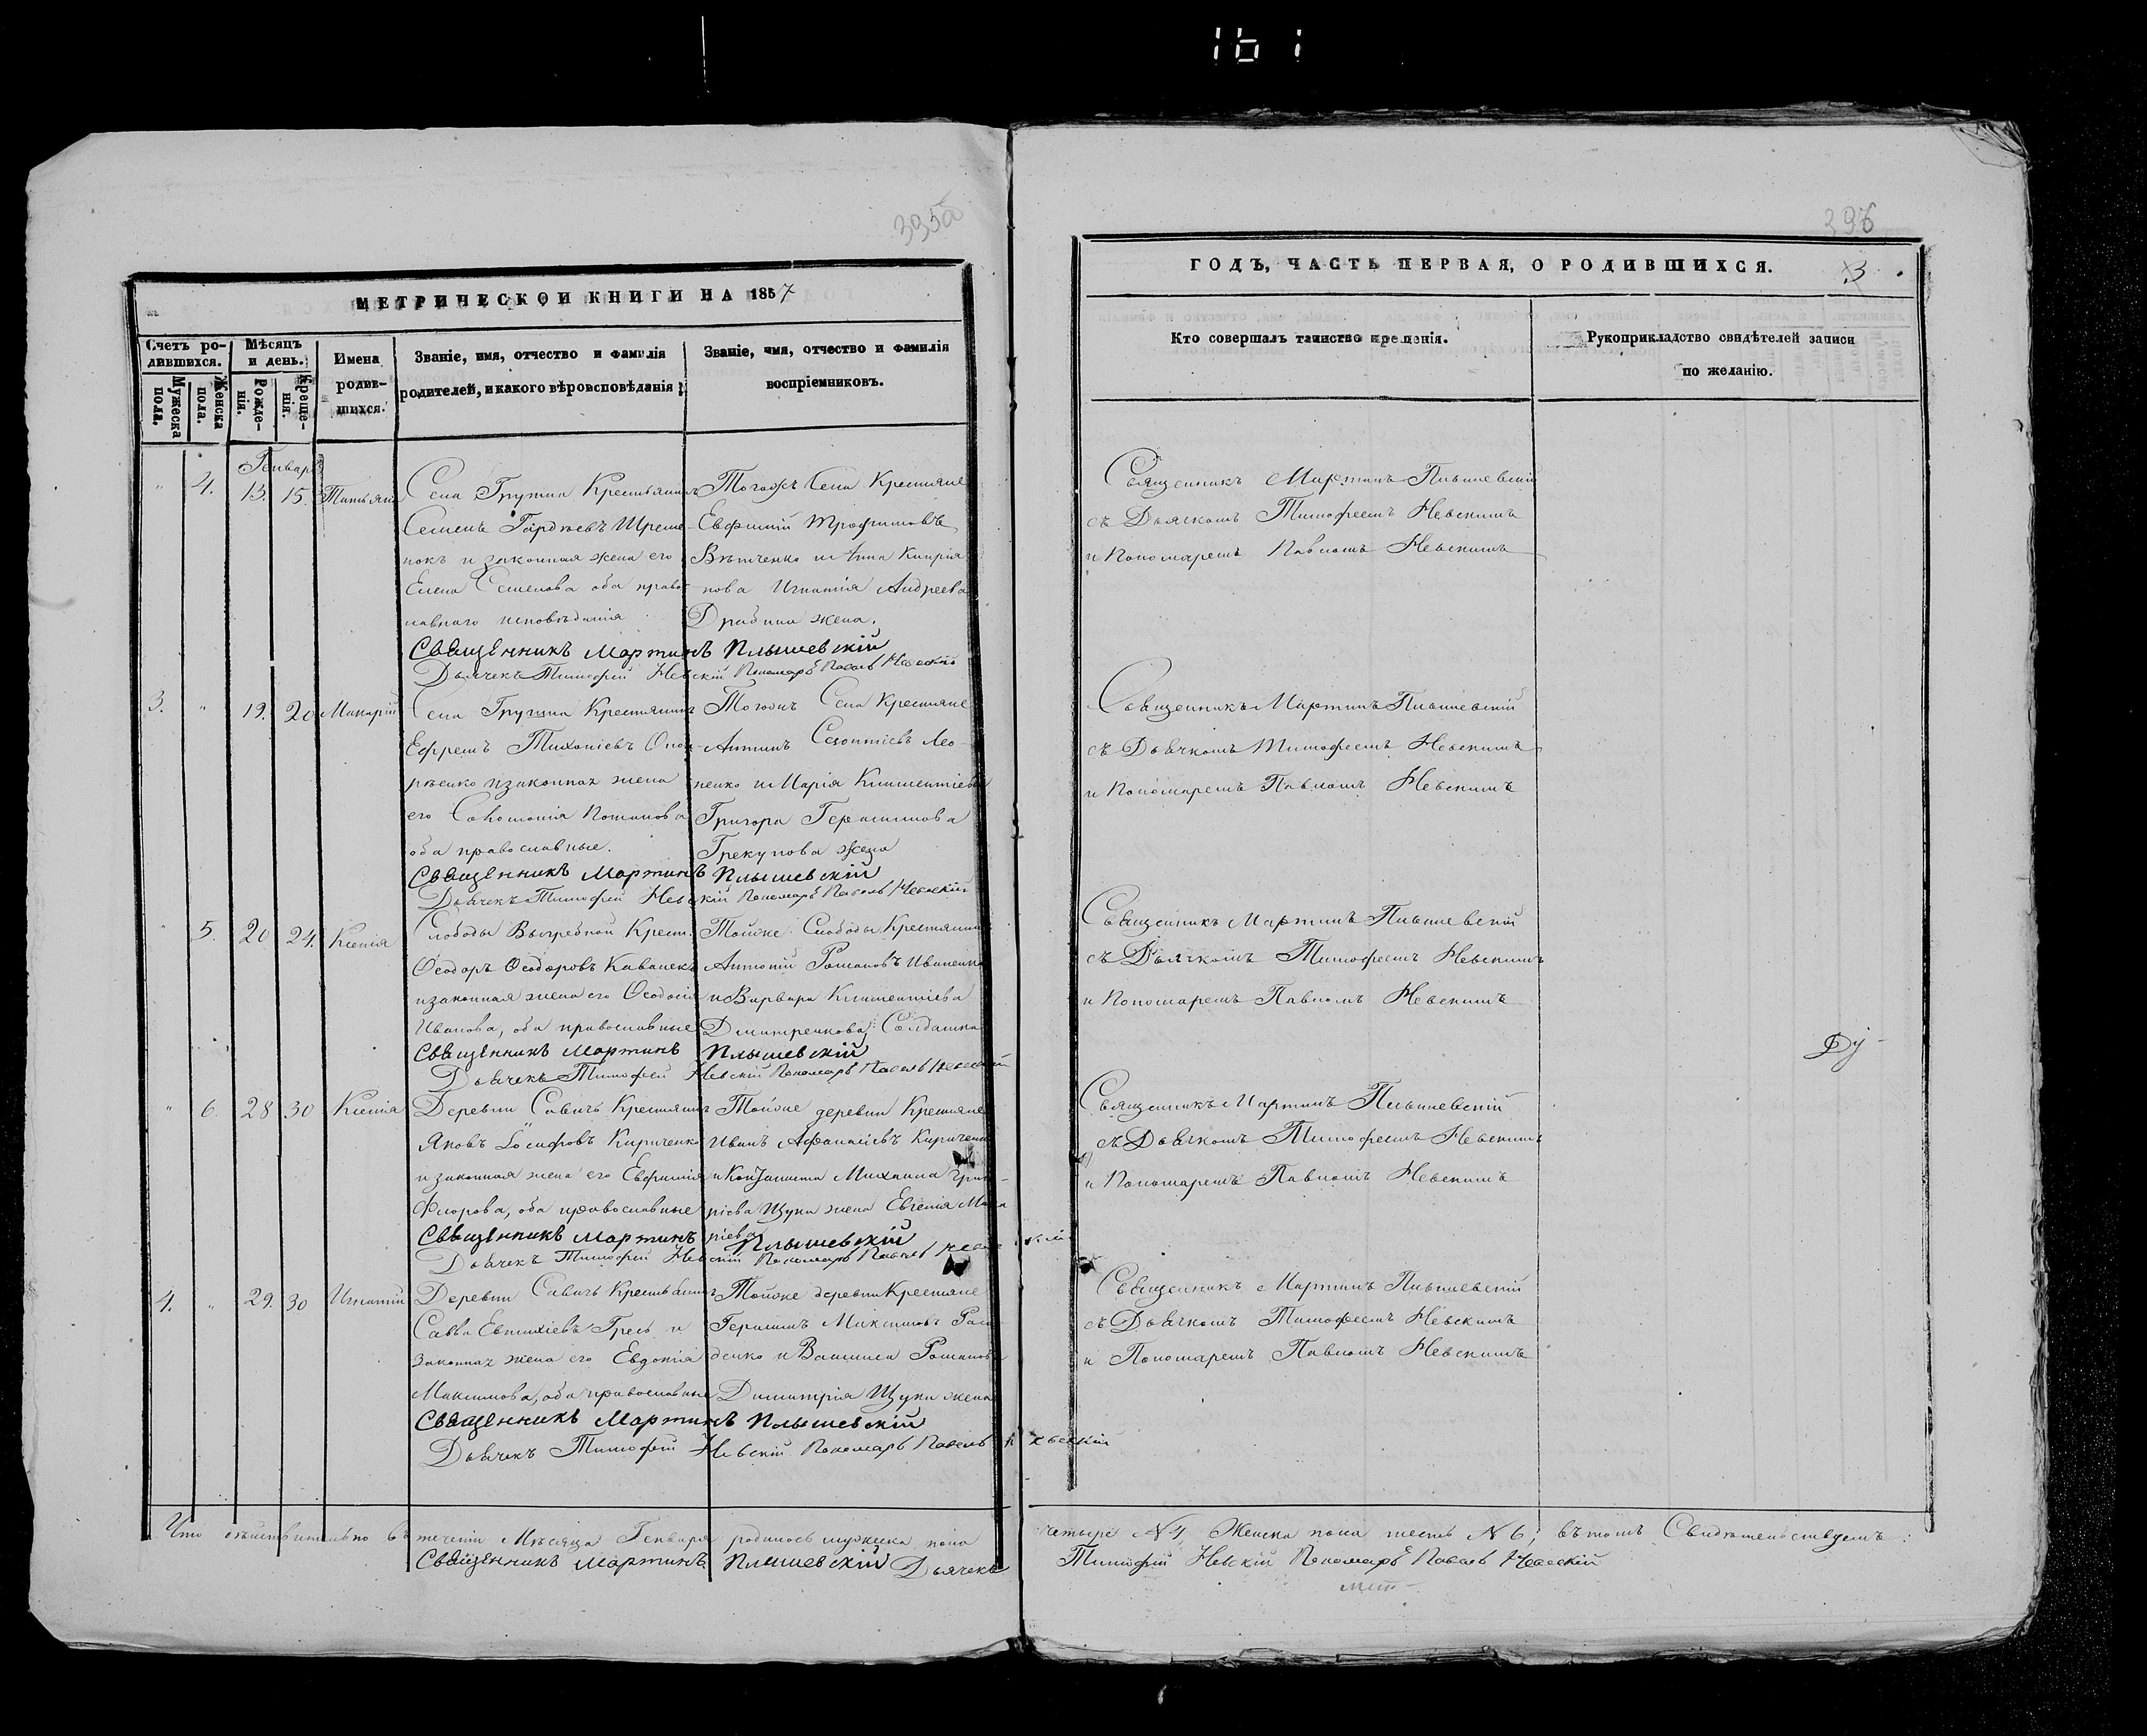 161
395а
МЕТРИЧЕСКОЙ КНИГИ НА 1857
Счетъ ро-
дившихся.
Мужеска
пола.
Женска
пола.
Мѣсяцъ
и день.
Рожде-
нія.
Креще-
нія.
Имена
родив-
шихся.
Званіе, имя, отчество и фамилія
родителей, и какого вѣроисповѣданія
Званіе, имя, отчество и фамилія
воспріемниковъ.
Генварь
" 4. 13. 15. Татьяна
Села Крестьянинъ
Семенъ
нокъ и законная жена его
Елена Семенова оба право-
славнаго исповѣданія
Тогожъ Села Крестьяне
Евфимій Трофимовъ
и Анна Кипрія-
нова Игнатія Андреева
жена.
Священникъ Мартинъ Плышевскій
Дьячекъ Тимофей Невскій Пономарь Павелъ Невскій
3. " 19. 20 Макарій
Села Крестьянинъ
Ефремъ
и законная жена
его Соломонія Потапова
оба православные.
Тогожъ Села Крестьяне
Антинъ Лео-
ненко и Марія Климентіева
Григора Герасимова
жена
Священникъ Мартинъ Плышевскій
Дьячекъ Тимофей Невскій Пономарь Павелъ Невскій
" 5. 20 24. Ксенія
Слободы Выгребной Крест.
Ѳеодоръ Ѳеодоровъ
и законная жена его Ѳеодосія
Иванова, оба православные
Тойже Слободы Крестьянинъ
Антоній Романовъ Иваненко
и Варвара Климентіева
Дмитренкова Солдатка
Священникъ Мартинъ Плышевскій
Дьячекъ Тимофей Невскій Пономарь Павелъ Невскій
" 6. 28 30 Ксенія
Деревни Савичъ Крестьянинъ
Яковъ Іосифовъ Кириченко
и законная жена его Евфимія
Флорова, оба православные
Тойже деревни Крестьяне
Иванъ Афанасіевъ Киричен
и Михаила Григо-
ріева Щуки жена Евгенія Мака
ріева
Священникъ Мартинъ Плышевскій
Дьячекъ Тимофей Невскій Пономарь Павелъ Невскій
4. " 29. 30 Игнатій
Деревни Савичъ Крестьянинъ
Савва Евтихіевъ Гресь и
законная жена его Евдокія
Максимова, оба православные
Тойже деревни Крестьяне
Герасимъ Максимовъ
денко и Романова
Димитрія Щуки жена
Священникъ Мартинъ Плышевскій
Дьячекъ Тимофей Невскій Пономарь Павелъ Невскій
Что дѣйствительно въ теченіи Мѣсяца Генваря родилось мужеска пола
Священникъ Мартинъ Плышевскій Дьячекъ
396
ГОДЪ, ЧАСТЬ ПЕРВАЯ, О РОДИВШИХСЯ.
3
Кто совершалъ таинство крещенія.
Рукоприкладство свидѣтелей записи
по желанію.
Священникъ Мартинъ Плышевскій
съ Дьячкомъ Тимофеемъ Невскимъ
и Пономаремъ Павломъ Невскимъ
Священникъ Мартинъ Плышевскій
съ Дьячкомъ Тимофеемъ Невскимъ
и Пономаремъ Павломъ Невскимъ
Священникъ Мартинъ Плышевскій
съ Дьячкомъ Тимофеемъ Невскимъ
и Пономаремъ Павломъ Невскимъ
Священникъ Мартинъ Плышевскій
съ Дьячкомъ Тимофеемъ Невскимъ
и Пономаремъ Павломъ Невскимъ
Священникъ Мартинъ Плышевскій
съ Дьячкомъ Тимофеемъ Невскимъ
и Пономаремъ Павломъ Невскимъ
четыре №4 Женска пола шесть №6, въ томъ Свидѣтельствуемъ:
Тимофей Невскій Пономарь Павелъ Невскій